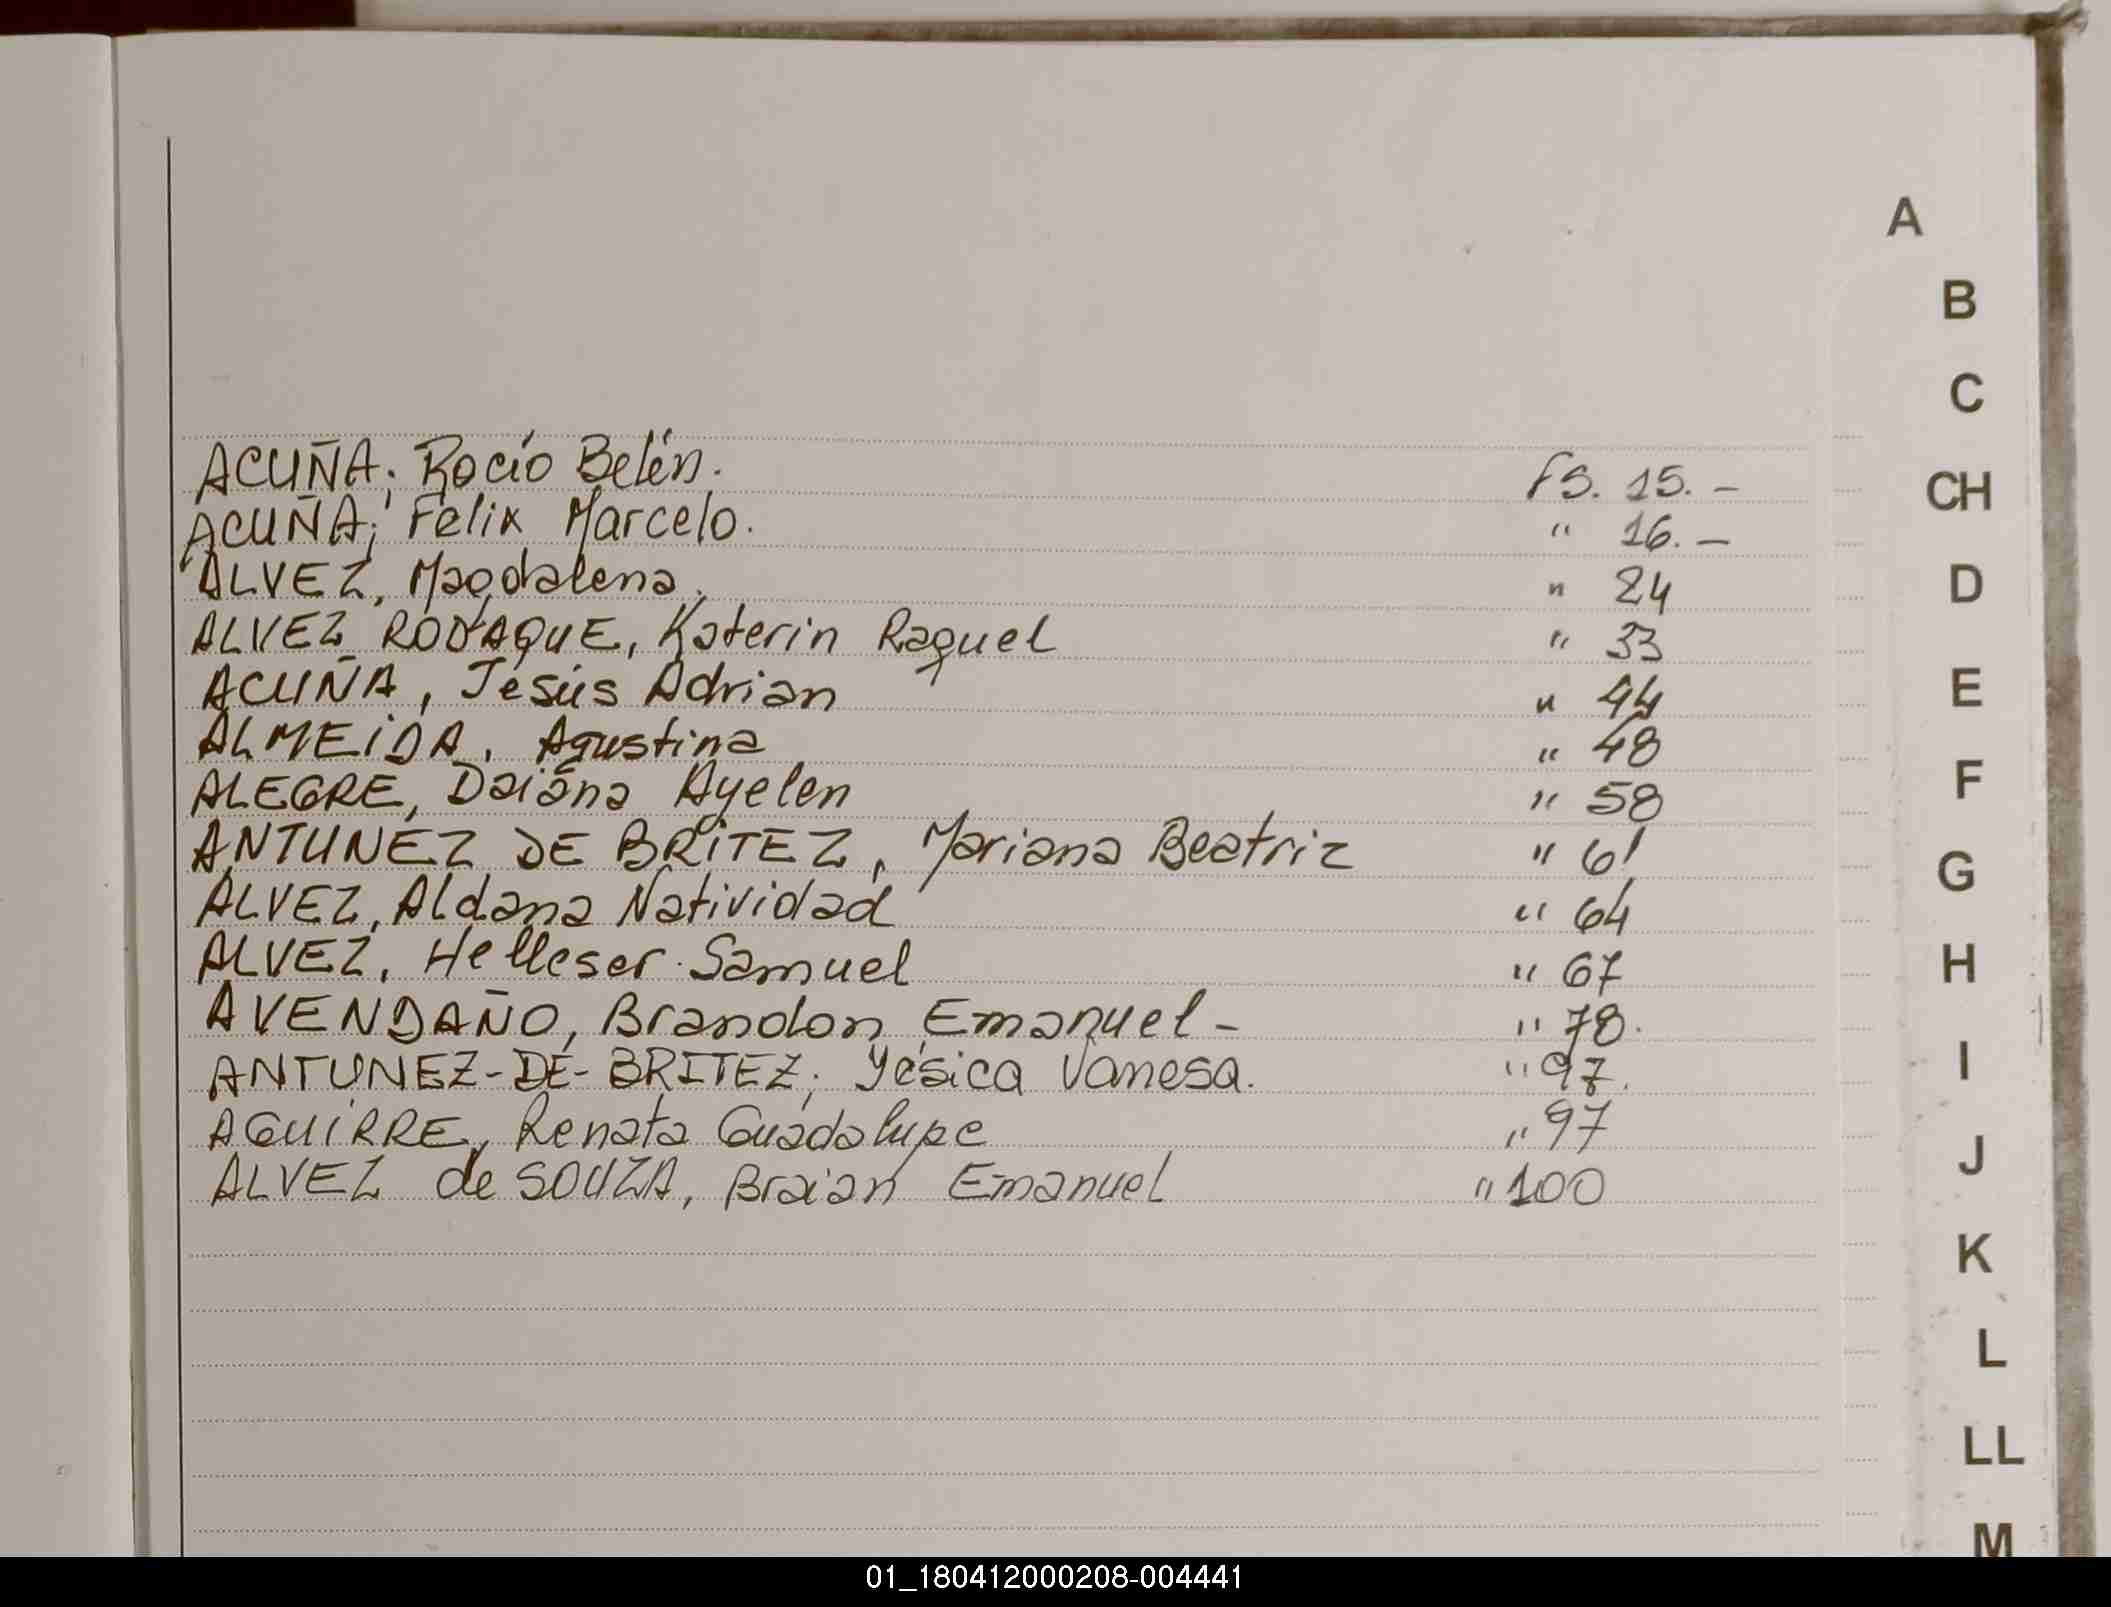 ACUÑA; Rocío Belén. FS. 15. –
ACUÑA; Felix Marcelo. " 16. –
ALVEZ, Magdalena. " 24
ALVEZ RODAQUE, Katerin Raquel " 33
ACUÑA, Jesús Adrian " 44
ALMEiDA, Agustina " 48
ALEGRE, Daiana Ayelen " 58
ANTUNEZ DE BRiTEZ, Mariana Beatriz " 61
ALVEZ, Aldana Natividad " 64
ALVEZ, Helleser Samuel " 67
AVENDAÑO, Brandon Emanuel - " 78.
ANTUNEZ-DE-BRITEZ; Yésica Vanesa. " 97.
AGUiRRE, Renata Guadalupe " 97
ALVEZ de SOUZA, Braian Emanuel " 100
A
B
C
CH
D
E
F
G
H
I
J
K
L
LL
M
01_180412000208-004441